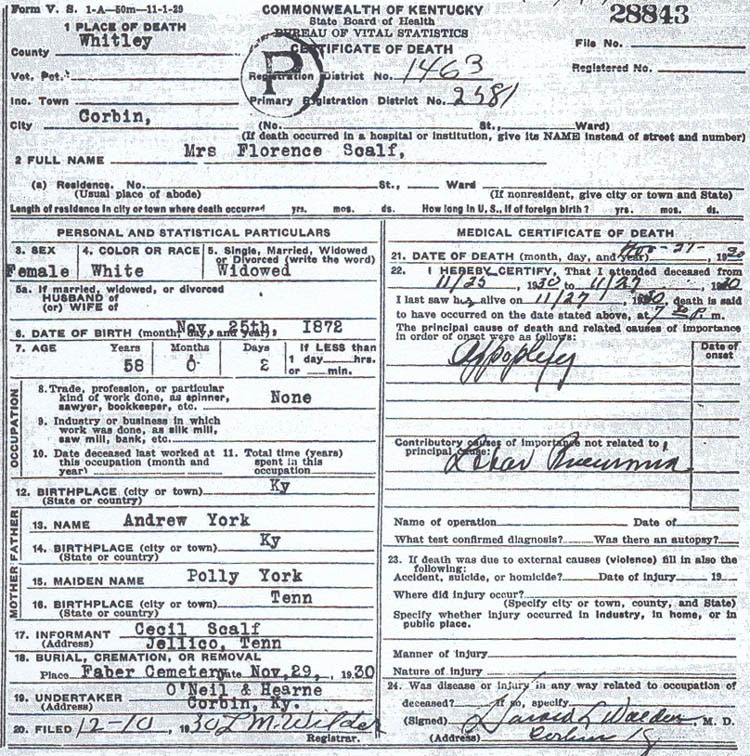 Form V. S. 1-A—50m—11-1-29
COMMONWEALTH OF KENTUCKY
State Board of Health
BUREAU OF VITAL STATISTICS
CERTIFICATE OF DEATH
28843
File No.
Registered No.
1 PLACE OF DEATH
County Whitley
Vot. Pct.
Inc. Town
City Corbin,
P
Registration District No. 1463
Primary Registration District No. 2381
(No. St., Ward)
(If death occurred in a hospital or institution, give its NAME instead of street and number)
2 FULL NAME Mrs Florence Scalf,
(a) Residence. No. St., Ward
(Usual place of abode) (If nonresident, give city or town and State)
Length of residence in city or town where death occurred yrs. mos. ds. How long in U. S., if of foreign birth? yrs. mos. ds.
PERSONAL AND STATISTICAL PARTICULARS
3. SEX 4. COLOR OR RACE 5. Single, Married, Widowed
or Divorced (write the word)
Female White Widowed
5a. If married, widowed, or divorced
HUSBAND of
(or) WIFE of
6. DATE OF BIRTH (month, day, and year), Nov, 25th, 1872
7. AGE Years Months Days If LESS than
1 day hrs.
or min.
58 0 2
OCCUPATION
8. Trade, profession, or particular
kind of work done, as spinner,
sawyer, bookkeeper, etc. None
9. Industry or business in which
work was done, as silk mill,
saw mill, bank, etc.
10. Date deceased last worked at
this occupation (month and
year)
11. Total time (years)
spent in this
occupation
12. BIRTHPLACE (city or town) Ky
(State or country)
FATHER
13. NAME Andrew York
14. BIRTHPLACE (city or town) Ky
(State or country)
MOTHER
15. MAIDEN NAME Polly York
16. BIRTHPLACE (city or town) Tenn
(State or country)
17. INFORMANT Cecil Scalf
(Address) Jellico, Tenn
18. BURIAL, CREMATION, OR REMOVAL
Place Faber Cemetery Date Nov, 29, 1930
19. UNDERTAKER O'Neil & Hearne
(Address) Corbin, Ky.
20. FILED 12-10, 1930 L M. Wilder
Registrar.
MEDICAL CERTIFICATE OF DEATH
21. DATE OF DEATH (month, day, and year) Nov-27-, 1930
22. I HEREBY CERTIFY, That I attended deceased from
11/25, 1930 to 11/27 1930
I last saw her alive on 11/27, 1930, death is said
to have occurred on the date stated above, at 7 P. m.
The principal cause of death and related causes of importance
in order of onset were as follows:
Date of
onset
Appoplexy
Contributory causes of importance not related to
principal cause:
Lobar Pneumonia
Name of operation Date of
What test confirmed diagnosis? Was there an autopsy?
23. If death was due to external causes (violence) fill in also the
following:
Accident, suicide, or homicide? Date of injury 19
Where did injury occur?
(Specify city or town, county, and State)
Specify whether injury occurred in industry, in home, or in
public place.
Manner of injury
Nature of injury
24. Was disease or injury in any way related to occupation of
deceased? If so, specify
(Signed) M. D.
(Address) Corbin Ky